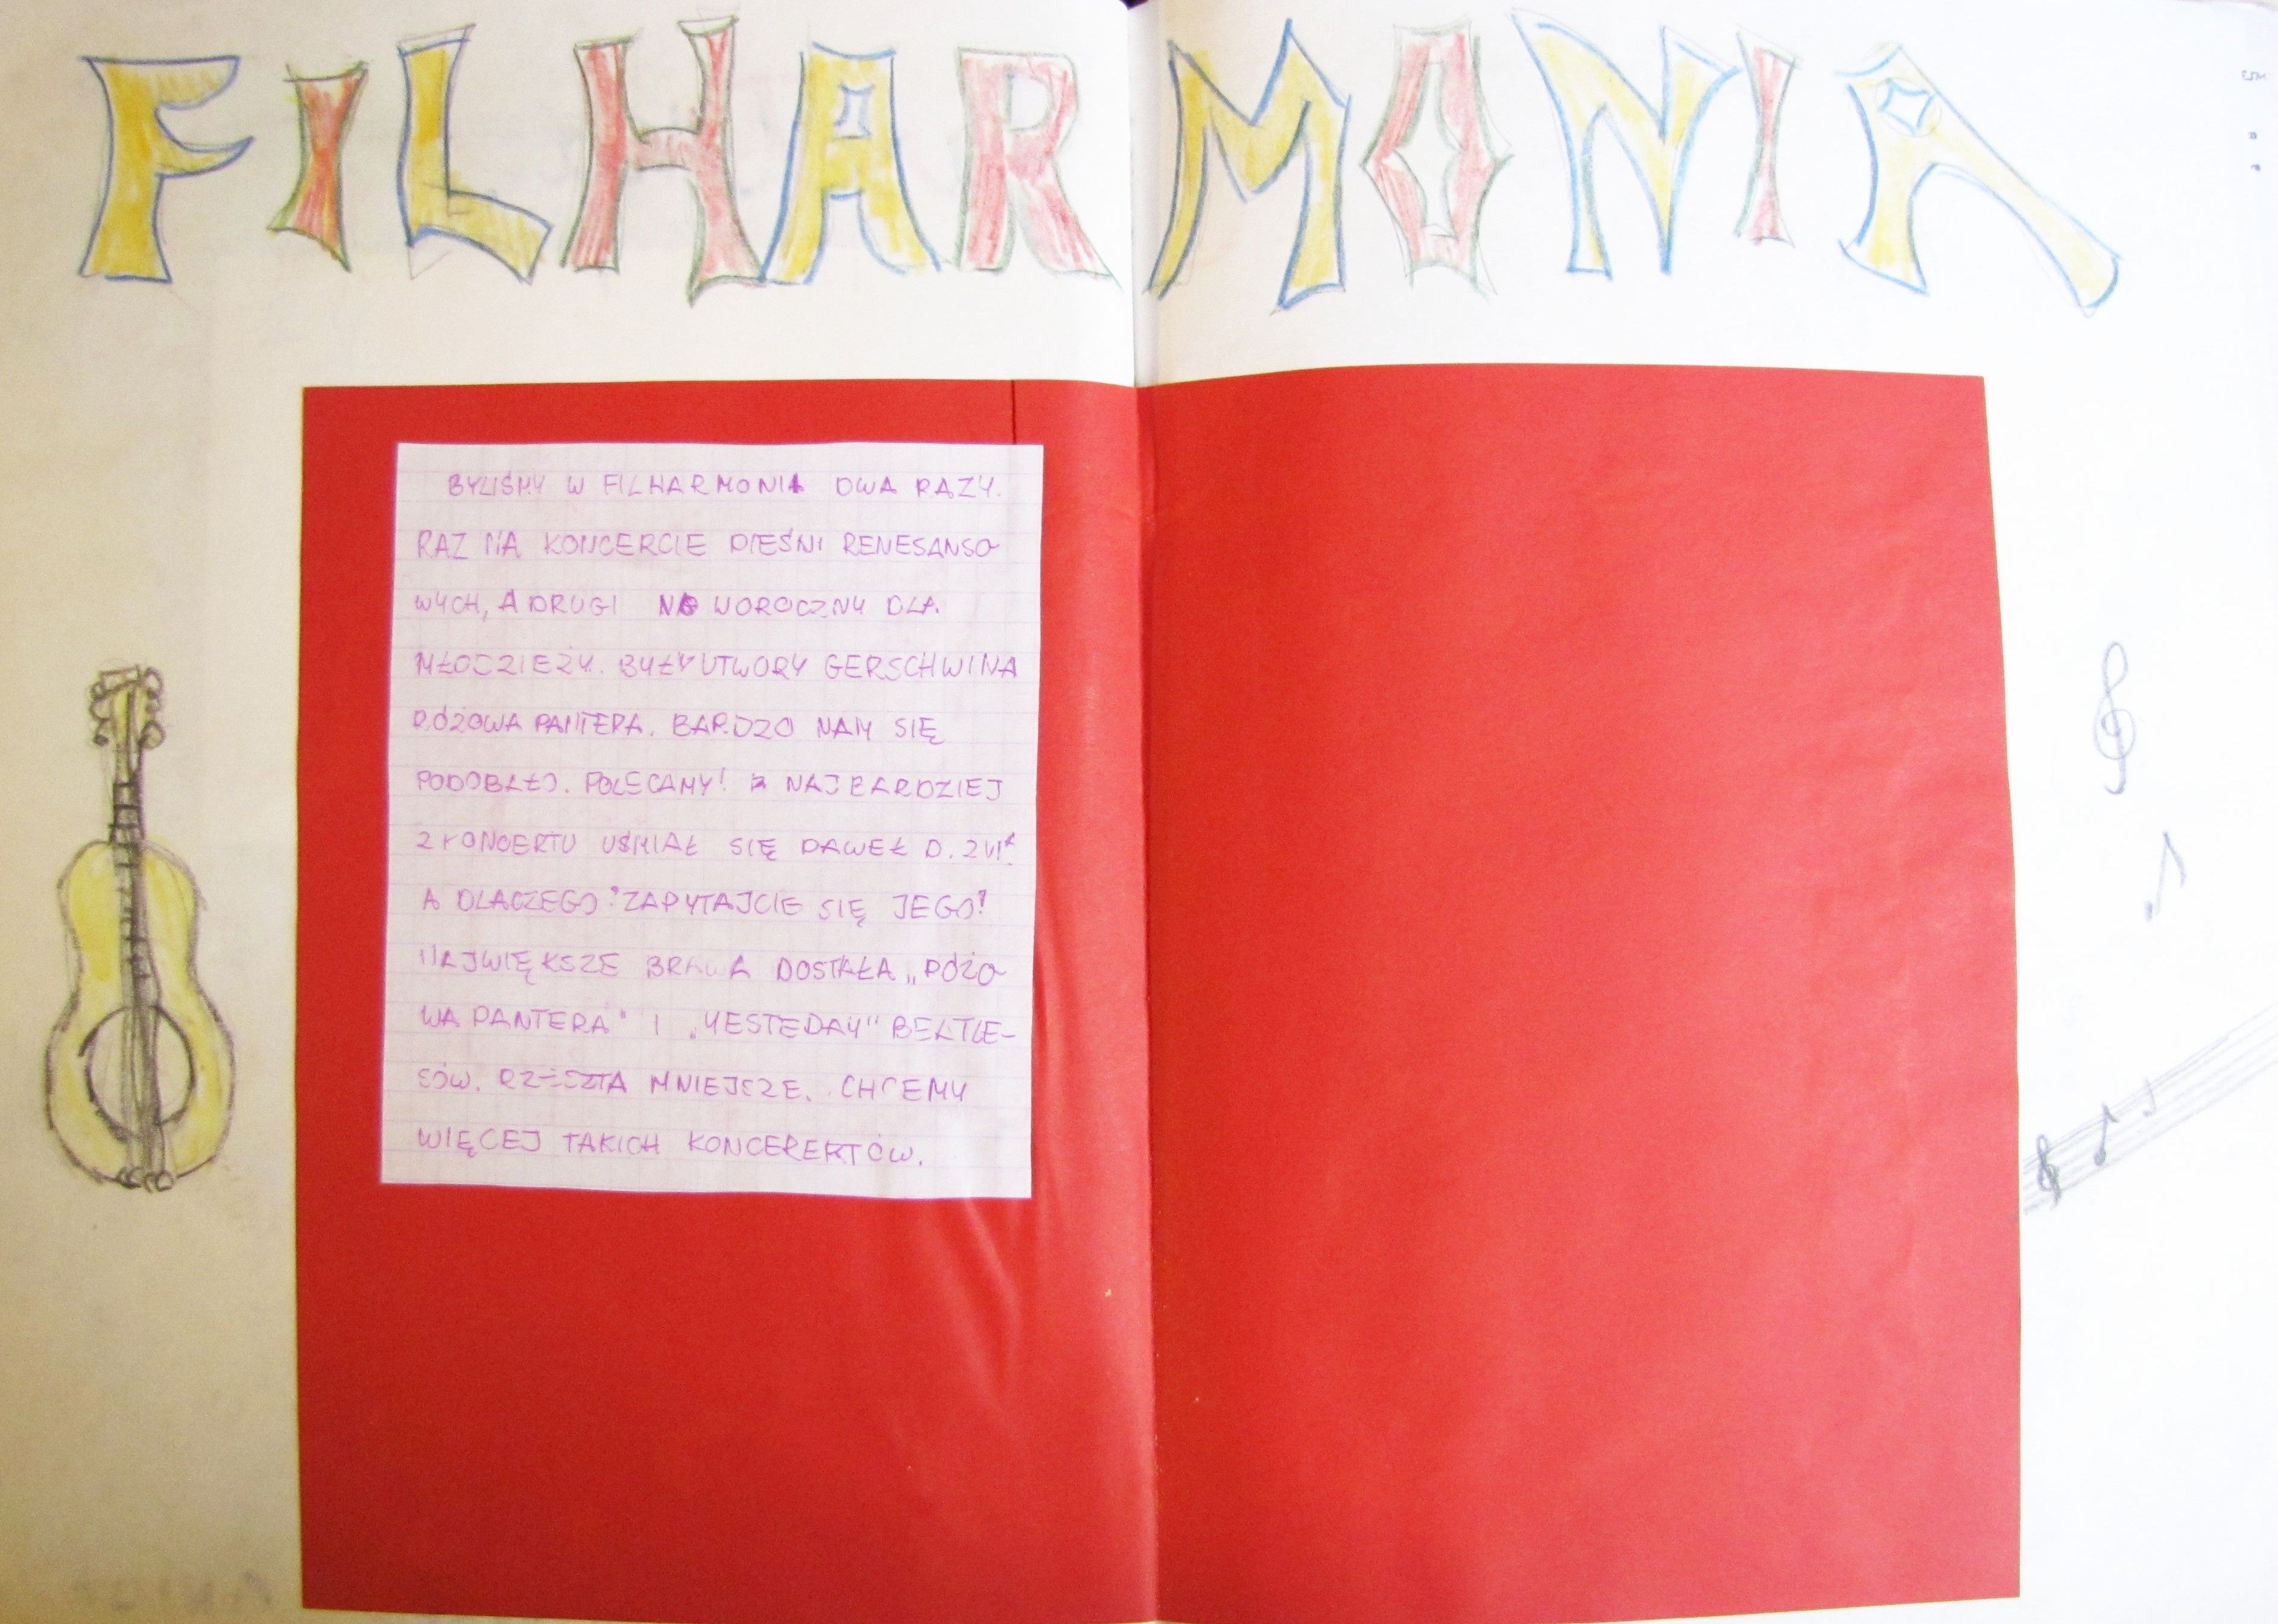 FILHARMONIA
BYLIŚMY W FILHARMONII DWA RAZY.
RAZ NA KONCERCIE PIEŚNI RENESANSO
WYCH, A DRUGI NOWOROCZNY DLA
MŁODZIEŻY. BYŁY UTWORY GERSCHWINA
RÓŻOWA PANTERA. BARDZO NAM SIĘ
PODOBAŁO. POLECAMY! NAJBARDZIEJ
Z KONCERTU UŚMIAŁ SIĘ PAWEŁ D. Z VI
A DLACZEGO? ZAPYTAJCIE SIĘ JEGO!
NAJWIĘKSZE BRAWA DOSTAŁA „RÓŻO
WA PANTERA" I „YESTEDAY" BEATLE-
SÓW. RZESZTA MNIEJSZE. CHCEMY
WIĘCEJ TAKICH KONCERERTÓW.